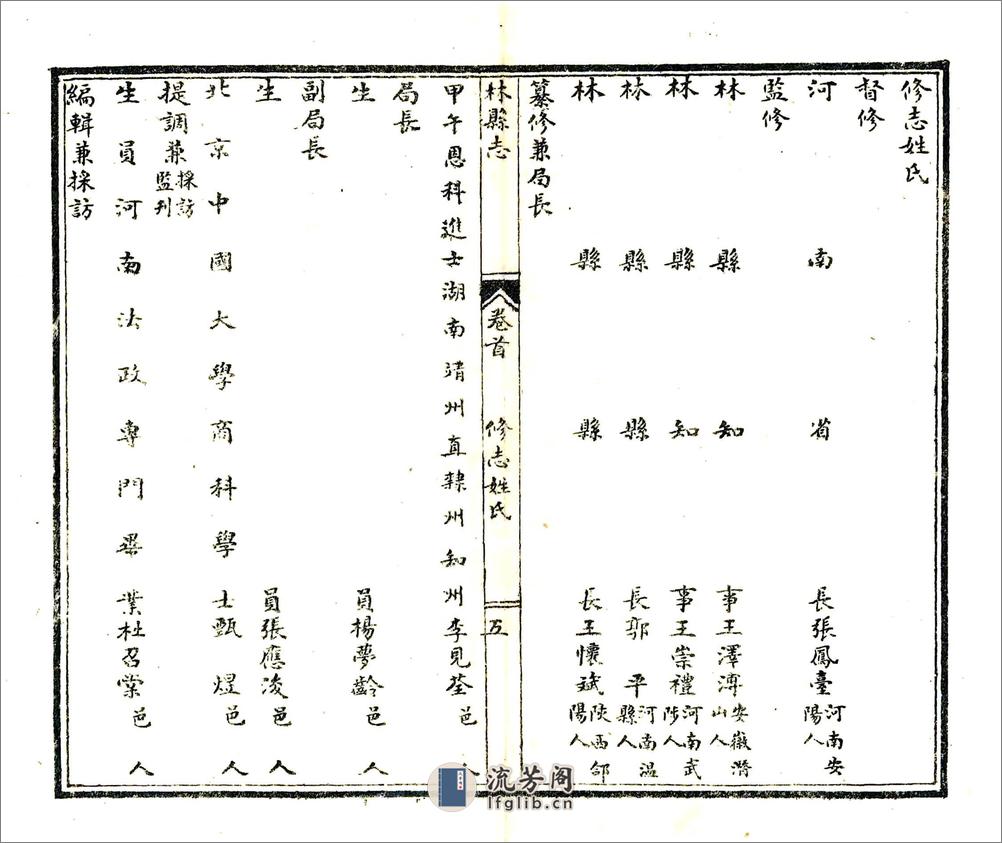 修志姓氏
督修
河南省長張鳳臺河南安陽人
監修
林縣知事王澤溥安徽潛山人
林縣知事王崇禮河南武陟人
林縣縣長郭平河南温縣人
林縣縣長王懷斌陝西郃陽人
纂修兼局長
林縣志 卷首 修志姓氏 五
甲午恩科進士湖南靖州直隸州知州李見荃邑人
局長
生員楊夢齡邑人
副局長
生員張應浚邑人
北京中國大學商科學士甄煜邑人
提調兼採訪監刊
生員河南法政專門畢業杜召棠邑人
編輯兼採訪
流芳阁
lfglib.cn